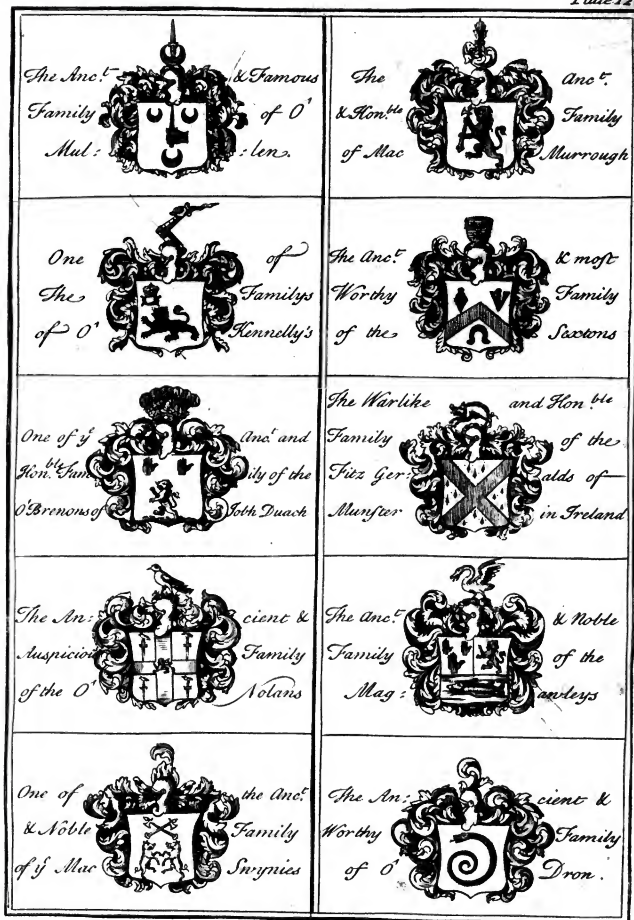 The Anc.t & Famous
Family of O'
Mul: :len.
The Anc.t
& Hon.ble Family
of Mac Murrough
One of
The Familys
of O' Kennelly's
The Anc.t & most
Worthy Family
of the Sextons
One of y.e Anc.t and
Hon.ble Fam ily of the
O'Brenons of Ioth Duach
The Warlike and Hon.ble
Family of the
Fitz Ger: alds of
Munster in Ireland
The An: cient &
Auspiciou Family
of the O' Nolans
The Anc.t & Noble
Family of the
Mag: awleys
One of the Anc.t
& Noble Family
of y.e Mac Swynies
The An: cient &
Worthy Family
of O' Dron.